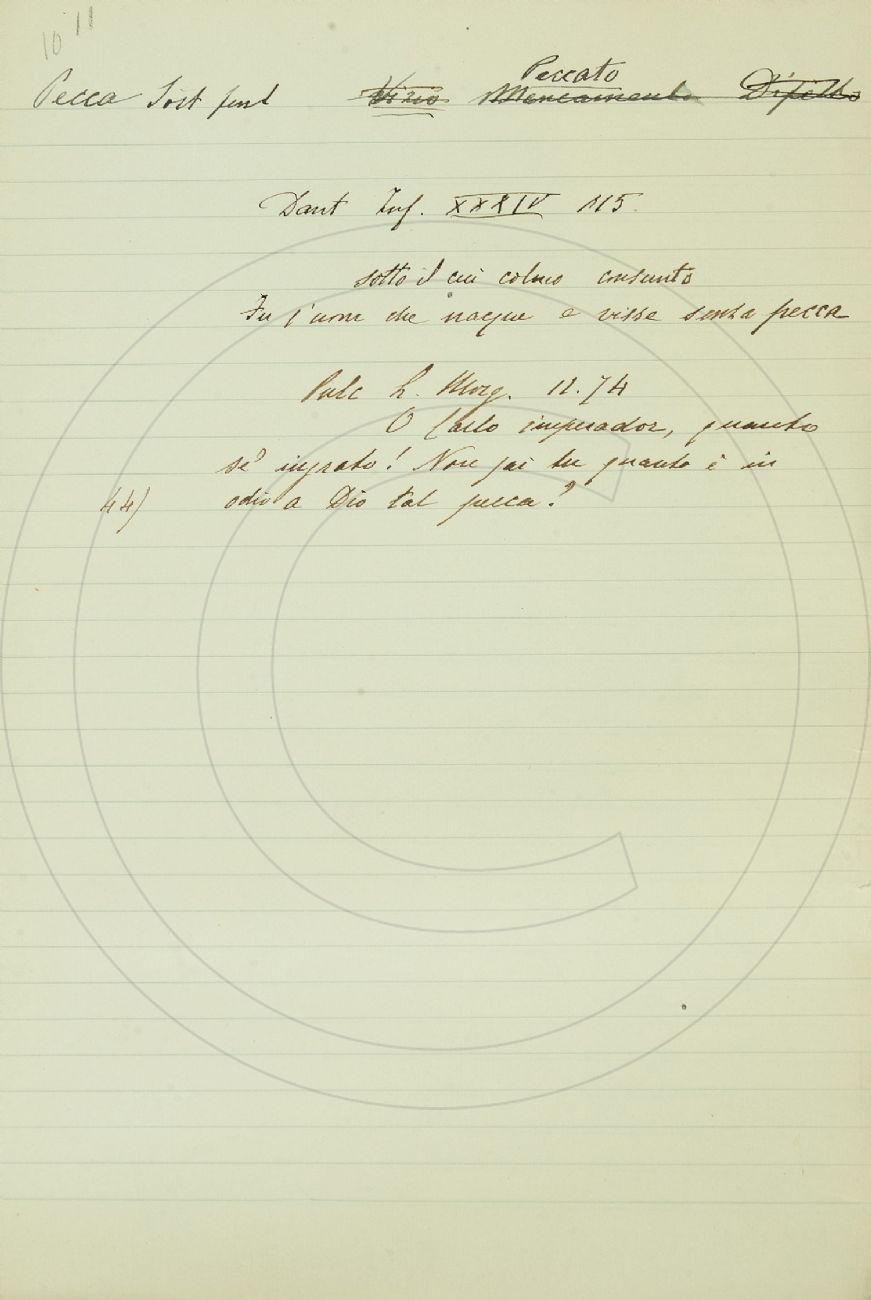 10 11
Peccato
Pecca Sost fem Vizio Mancamento Difetto
Dant Inf. XXXIV 115.
sotto il cui colmo consunto
Fu l'uom che nacque e visse senza pecca
Pulc L. Morg. 11.74
O Carlo imperador, quanto
se' ingrato! Non sai tu quanto è in
44) odio a Dio tal pecca?